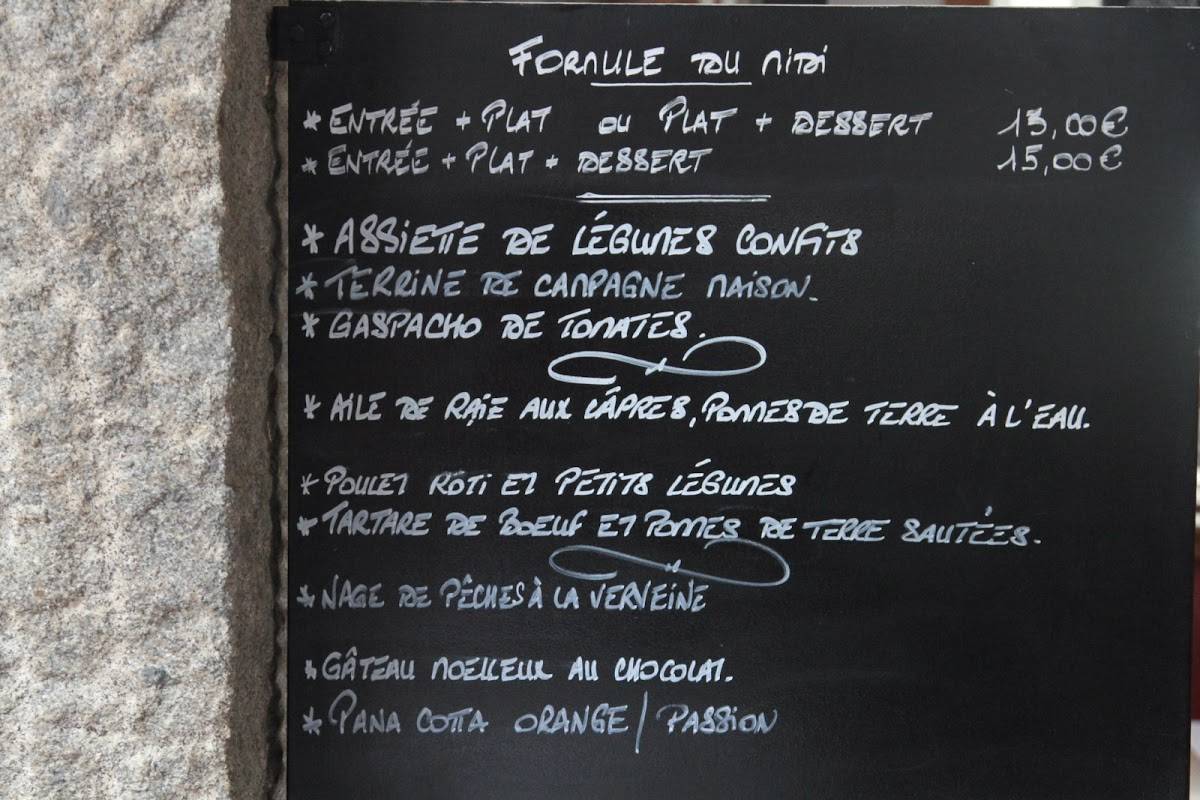 FORMULE DU MIDI
* ENTRÉE + PLAT OU PLAT + DESSERT 13,00€
* ENTRÉE + PLAT + DESSERT 15,00€
* ASSIETTE DE LÉGUMES CONFITS
* TERRINE DE CAMPAGNE MAISON.
* GASPACHO DE TOMATES.
* AILE DE RAIE AUX CÂPRES, POMMES DE TERRE À L'EAU.
* POULET RÔTI ET PETITS LÉGUMES
* TARTARE DE BOEUF ET POMMES DE TERRE SAUTÉES.
* NAGE DE PÊCHES À LA VERVEINE
* GÂTEAU MOELLEUX AU CHOCOLAT.
* PANA COTTA ORANGE / PASSION